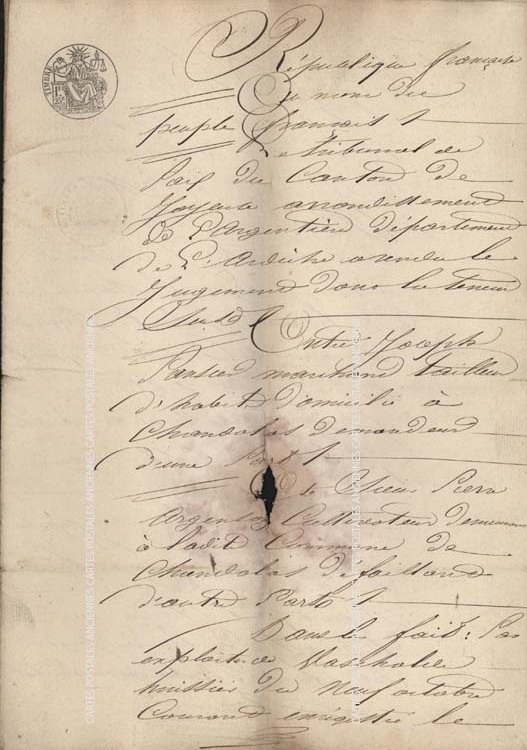 TIMBRE
République française
Au nom du
peuple français
Le tribunal de
Paix du Canton de
Joyeuse arrondissement
de L'argentière Département
de L'ardèche a rendu le
Jugement dont la teneur
Suit
Entre Joseph
marchand tailleur
d'habits domicilié à
Chandolas demandeur
d'une Part
Et le Sieur Pierre
Cultivateur demeurant
à ladite Commune de
Chandolas défaillant
d'autre Part
Dans le fait: Par
exploit de
huissier du Neuf octobre
Courant enregistré le
CARTES POSTALES ANCIENNES CARTES POSTALES ANCIENNES CARTES POSTALES ANCIENNES
CARTES POSTALES ANCIENNES CARTES POSTALES ANCIENNES CARTES POSTALES ANCIENNES